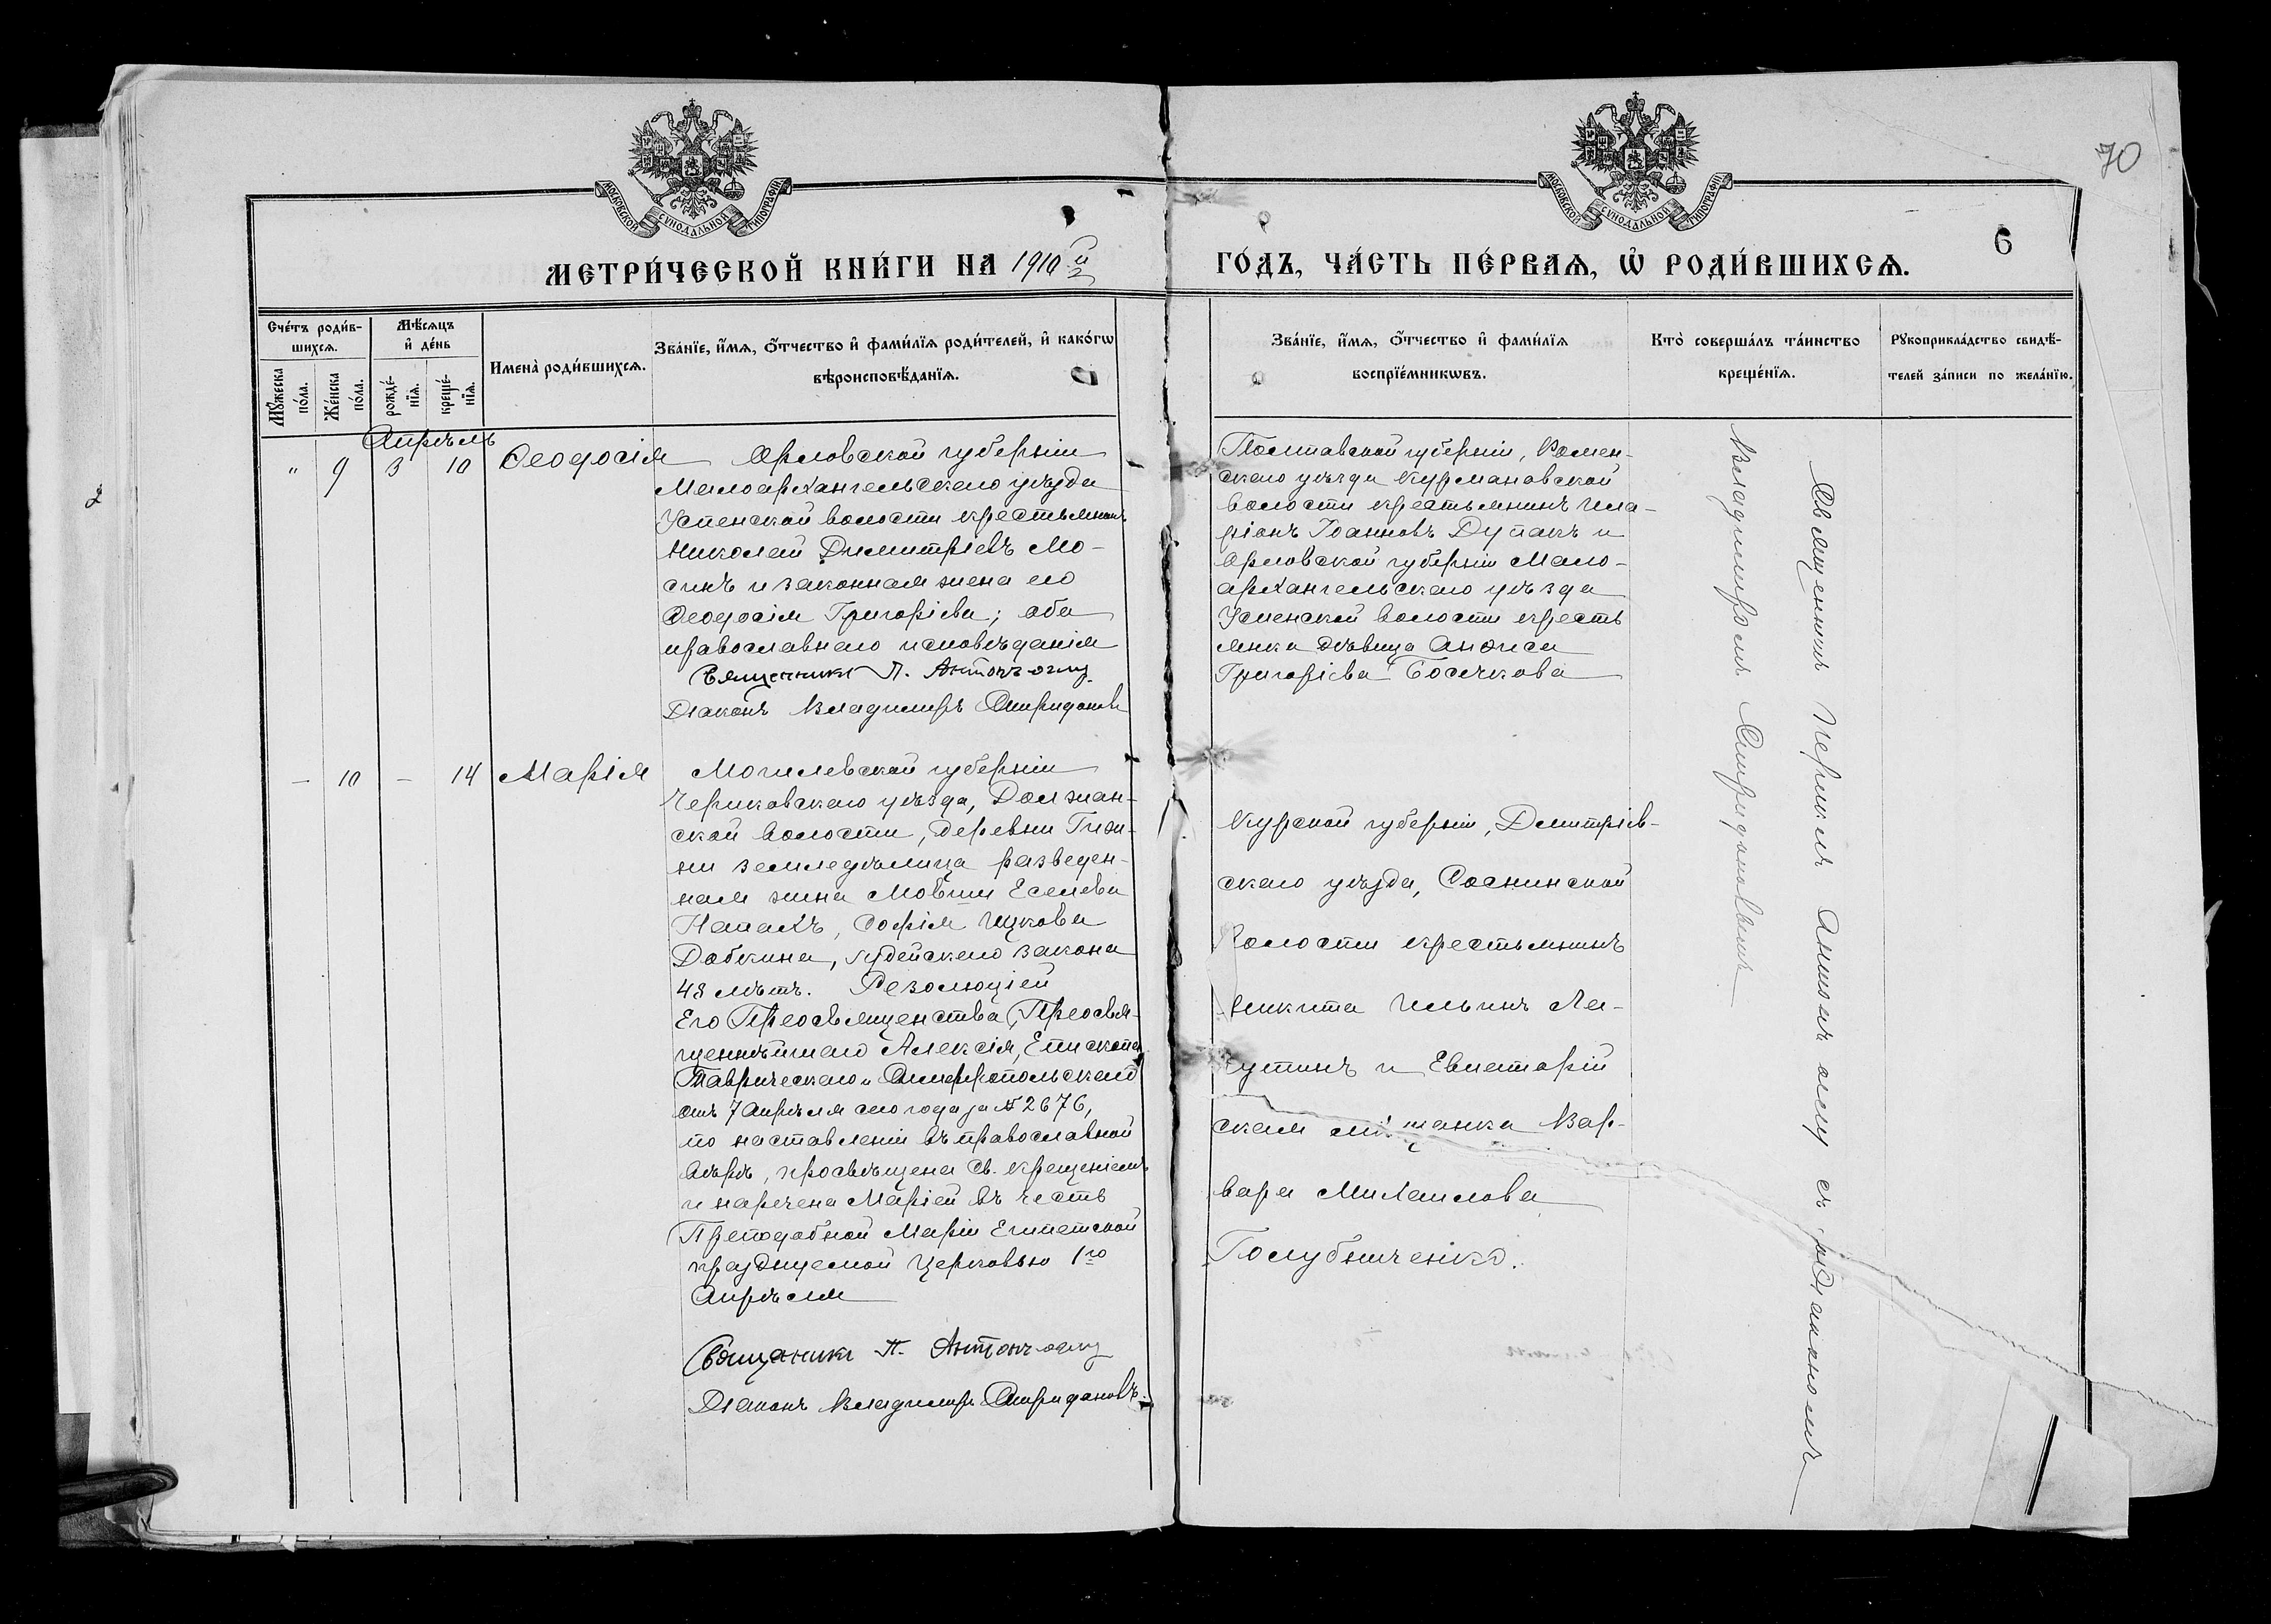 70
6
МОСКОВСКОЙ СѴНОДАЛЬНОЙ ТИПОГРАФІИ
МОСКОВСКОЙ СѴНОДАЛЬНОЙ ТИПОГРАФІИ
МЕТРИ́ЧЕСКОЙ КНИ́ГИ НА 1910й
ГО́ДЪ, ЧА́СТЬ ПЕ́РВАѦ, Ѡ РОДИ́ВШИХСѦ.
Сче́тъ роди́в-
шихсѧ.
Мꙋ́жеска
по́ла.
Же́нска
по́ла.
Мѣ́сѧцъ
и҆ де́нь
рожде́-
нїѧ.
креще́-
нїѧ.
Имена̀ роди́вшихсѧ.
Зва́нїе, и҆́мѧ, ѻ҆́тчество и҆ фами́лїѧ роди́телей, и҆ како́гѡ
вѣроисповѣ́данїѧ.
Зва́нїе, и҆́мѧ, ѻ҆́тчество и҆ фами́лїѧ
воспрїе́мникѡвъ.
Кто̀ соверша́лъ та́инство
креще́нїѧ.
Рꙋкоприкла́дство свидѣ́-
телей за́писи по жела́нїю.
Апрѣль
" 9 3 10 Ѳеодосія
Орловской губерніи
Малоархангельскаго уѣзда
Успенской волости крестьянинъ
Николай Димитріевъ Мо-
синъ и законная жена его
Ѳеодосія Григоріева; оба
православнаго исповѣданія
Священникъ П. Антонъ-оглу
Діаконъ Владимиръ Спиридоновъ
Полтавской губерніи, Ромен-
скаго уѣзда Курмановской
волости крестьянинъ Ила-
ріонъ Іоанновъ Дупакъ и
Орловской губерніи Мало-
архангельскаго уѣзда
Успенской волости кресть
янка дѣвица Анѳиса
Григоріева Босечкова
— 10 — 14 Марія
Могилевской губерніи
Чериковскаго уѣзда, Должан-
ской волости, деревни Гиж-
ни земледѣльца разведен-
ная жена Мовши Еселева
Софія Ицкова
Добкина, іудейскаго закона
48 лѣтъ. Резолюціей
Его Преосвященства, Преосвя-
щеннѣйшаго Алексія, Епископа
Таврическаго и Симферопольскаго
отъ 7 Апрѣля сего года за № 2676,
по наставленіи въ православной
вѣрѣ, просвѣщена Св. Крещеніемъ
и наречена Маріей въ честь
Преподобной Маріи Египетской
празднуемой Церковью 1го
Апрѣля
Священникъ П. Антонъ-оглу
Діаконъ Владимиръ Спиридоновъ
Курской губерніи, Дмитріев-
скаго уѣзда, Соснинской
Волости крестьянинъ
Никита Ильинъ Ла-
кутинъ и Евпаторій
ская мѣщанка Вар-
вара Михаилова
Голубниченко.
Священникъ Периклъ Антонъ оглу съ діакономъ
Владимиромъ Спиридоновымъ